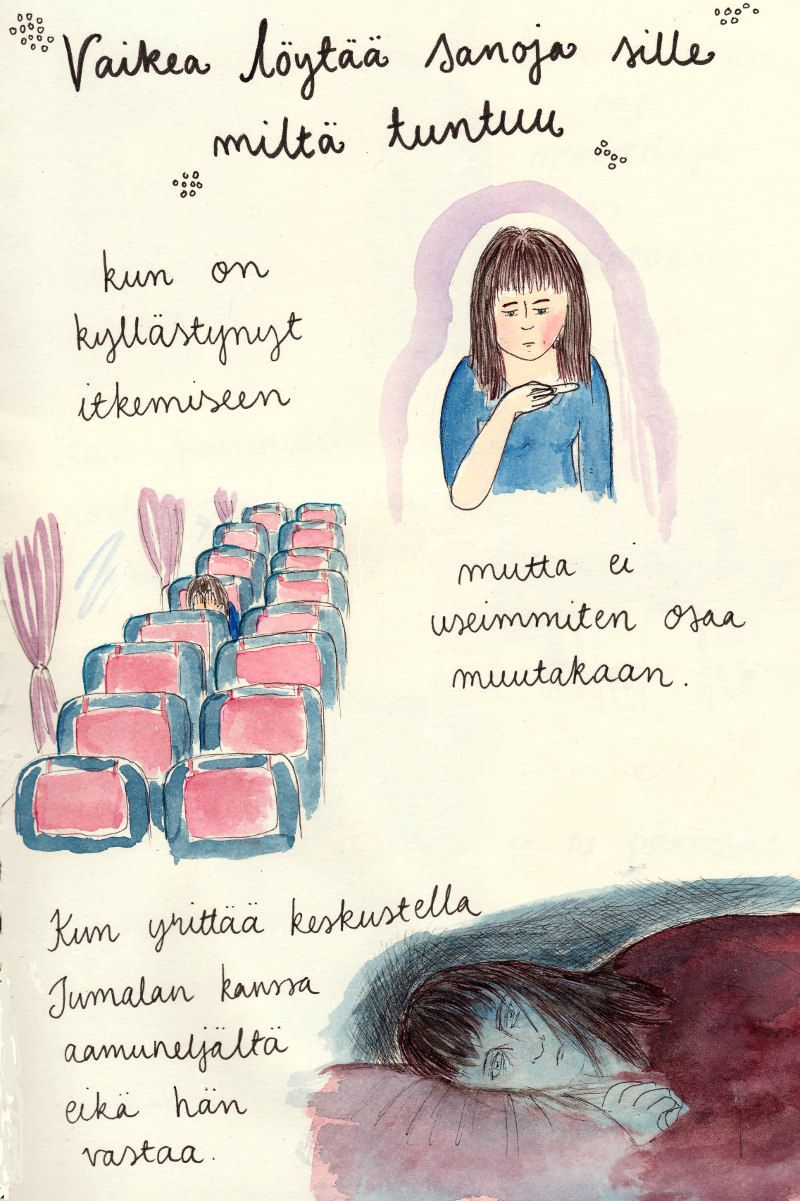 Vaikea löytää sanoja sille
miltä tuntuu
kun on
kyllästynyt
itkemiseen
mutta ei
useimmiten osaa
muutakaan.
Kun yrittää keskustella
Jumalan kanssa
aamuneljältä
eikä hän
vastaa.